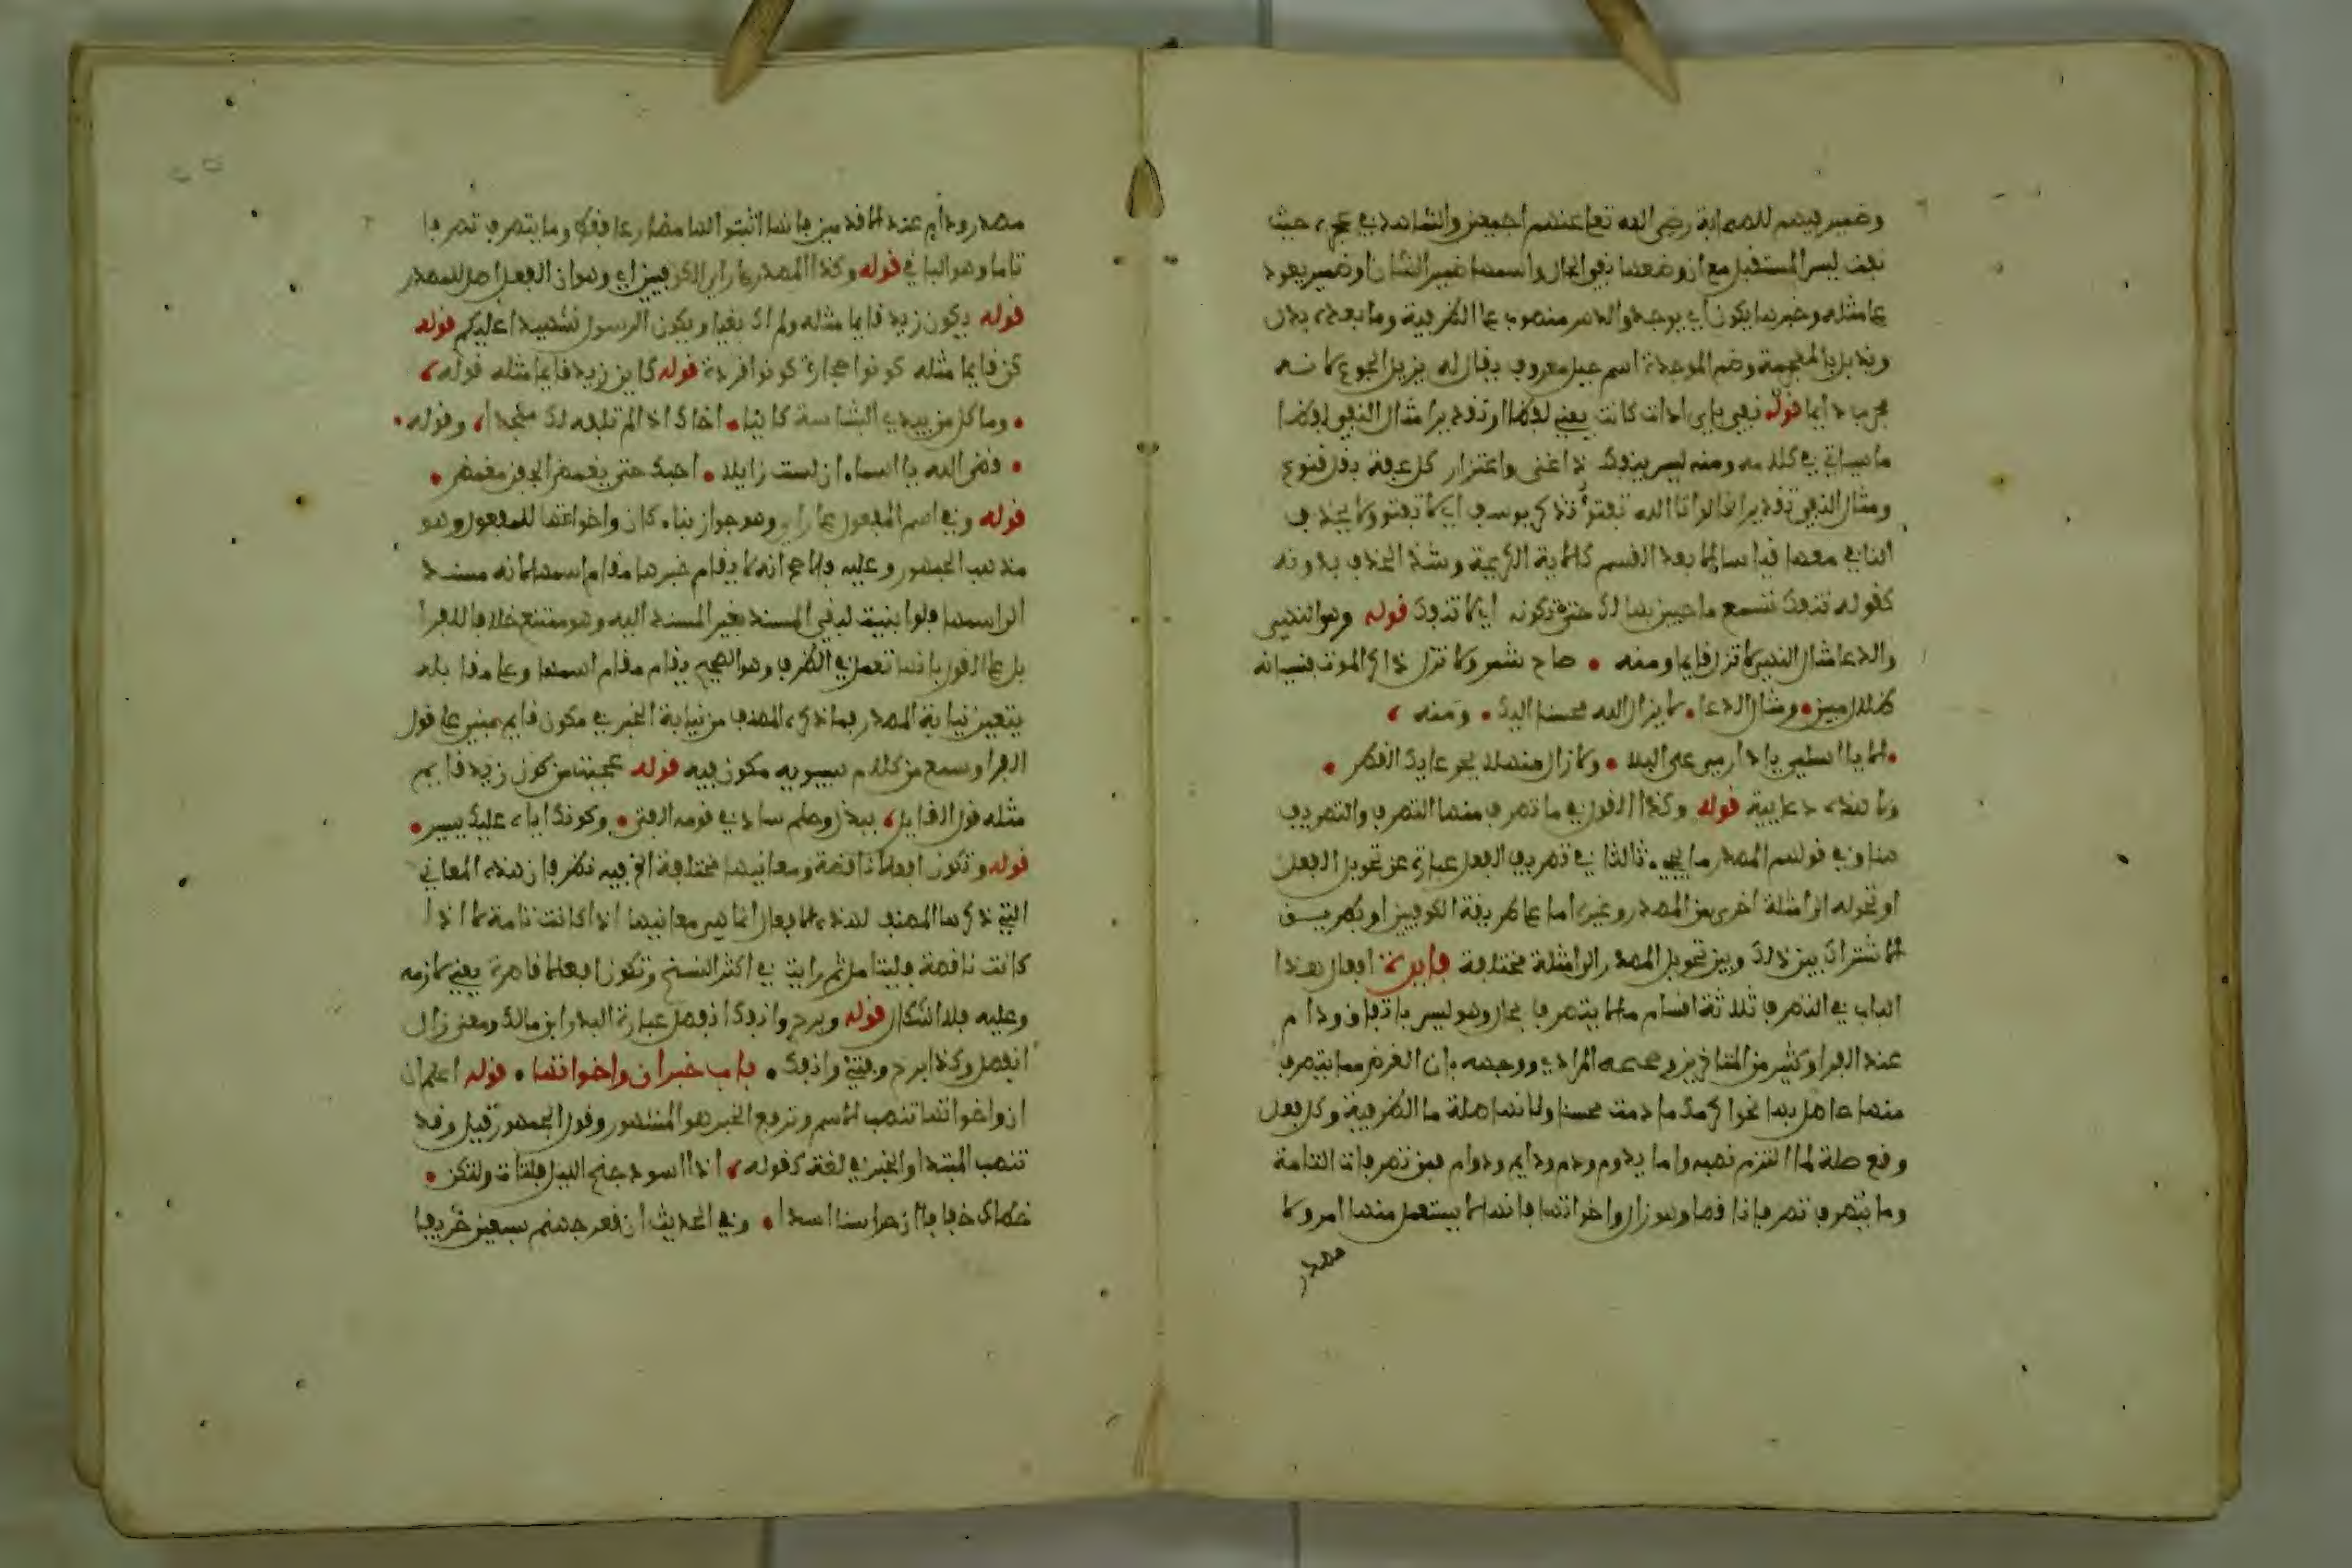 وضمير فيهم للصحابة رضي الله تعا عنهم اجمعين والشاهد في حيث
نفت ليس المستقبل مع ان وضعها نفي الحال واسمها ضمير الشان او ضمير يعود
عا مثله وخبرها يكون اي يوجد والدهر منصوب عا الظرفية وما بعده بدل
ويذبل بالمعجمة وضم الموحدة اسم جبل معروف يقال له يزيل الجوع لانه
مجرب دايما قوله نفي باي اداة كانت يعني لفظا او تقديرا مثال النفي لفظا
ما سياتي في كلامه ومنه ليس ينفك ذا غنى واعتزار كل عفة بقل قنوع
ومثال النفي تقديرا قالوا تالله تفتؤ تذكر يوسف اي لا تفتؤ ولا يحذف
النافي معها قياسا الا بعد القسم كالاية الكريمة وشذ الحذف بدونه
كقوله تنفك تسمع ما حييت بهالك حتى تكونه اي لا تنفك قوله وهو النهي
والدعا مثال النهي لا تزل قايما ومنه • صاح شمر ولا تزل ذاكر الموت فنسيانه
ضلال مبين • ومثال الدعاء • لا يزال الله محسنا اليك • ومنه ،
• الا يا اسلمي يا دار مي على البلا • ولا زال منهلا بجرعايك القطر •
ولا هذه دعايية قوله وكذا القول في ما تصرف منها التصرف والتصريف
هنا وفي قولهم المصدر ما يجيء ثالثا في تصريف الفعل عبارة عن تحويل الفعل
او تحوله الى امثلة اخرى من المصدر وغيره اما عا طريقة الكوفيين او بطريق
الاشتراك بين ذلك وبين تحويل المصدر الى امثلة مختلفة فايدة افعال هذا
الباب في التصرف ثلاثة اقسام ما لا يتصرف بحال وهو ليس باتفاق ودام
عند الفرا وكثير من المتاخرين وصححه المرادي ووجهه بان الغرض مما يتصرف
منها حاصل بها نحو اكرمك ما دمت محسنا ولانها صلة ما الظرفية وكل فعل
وقع صلة لما التزم نصبه واما يدوم ودم ودايم ودوام فمن تصرفات التامة
وما يتصرف تصرفا ناقصا وهو زال واخواتها فانها لا يستعمل منها امر ولا
مصدر
مصدر ودام عند الاقدمين فانها اثبتوا لها مضارعا فقط وما يتصرف تصرفا
تاما وهو الباقي قوله وكذا المصدر عا راي الكوفيين اي وهو ان الفعل اصل للمصدر
قوله يكون زيد قايما مثله ولم اك بغيا ويكون الرسول شهيدا عليكم قوله
كن قايما مثله كونوا حجارة كونوا قردة قوله كاين زيد قايما مثله قوله ،
• وما كل من يبدي البشاشة كاينا • اخاك اذا لم تلفه لك منجدا ، وقوله •
• قضى الله يا اسماء ان لست زايلا • احبك حتى يغمض الجفن مغمض •
قوله وفي اسم المفعول عا راي وهو جواز بناء كان واخواتها للمفعول وهو
مذهب الجمهور وعليه فالاصح انه لا يقام خبرها مقام اسمها لانه مسند
الى اسمها فلو ابنيت لبقي المسند بغير المسند اليه وهو ممتنع خلافا للفرا
بل عا القول بانها تعمل في الظرف وهو الصحيح يقام مقام اسمها وعا مقابله
يتعين نيابة المصدر فما ذكره المصنف من نيابة الخبر في مكون قايم مبني عا قول
الفرا وسمع من كلام سيبويه مكون فيه قوله عجبت من كون زيد قايم
مثله قول القايل ، ببذل وحلم ساد في قومه الفتى • وكونك اياه عليك يسير •
قوله وتكون افعالا ناقصة ومعانيها مختلفة الخ فيه نظر فان هذه المعاني
التي ذكرها المصنف لهذه الافعال انما هي معانيها اذا كانت تامة لا اذا
كانت ناقصة فليتامل ثم رايت في اكثر النسخ وتكون افعالا قاصرة يعني لازمه
وعليه فلا اشكال قوله وبرح وانفك انفصل عبارة البدر ابن مالك ومعنى زال
انفصل وكذا برح وفتئ وانفك • باب خبر ان واخواتها • قوله اعلم ان
ان واخواتها تنصب الاسم وترفع الخبر هو المشهور وقول الجمهور قيل وقد
تنصب المبتدا والخبر في لغة كقوله ، اذا اسود جنح الليل فلتات ولتكن •
خطاك خفافا ان حراسنا اسدا • وفي الحديث ان قعر جهنم سبعين خريفا